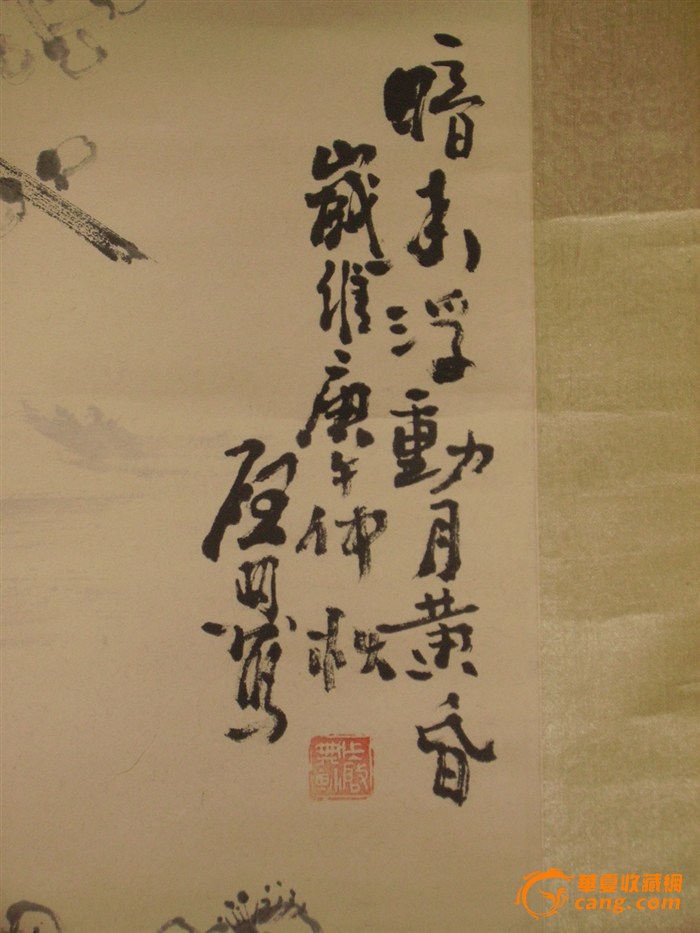 暗香浮動月黃昏
歲維庚午仲秋
明寫
華夏收藏網
cang.com